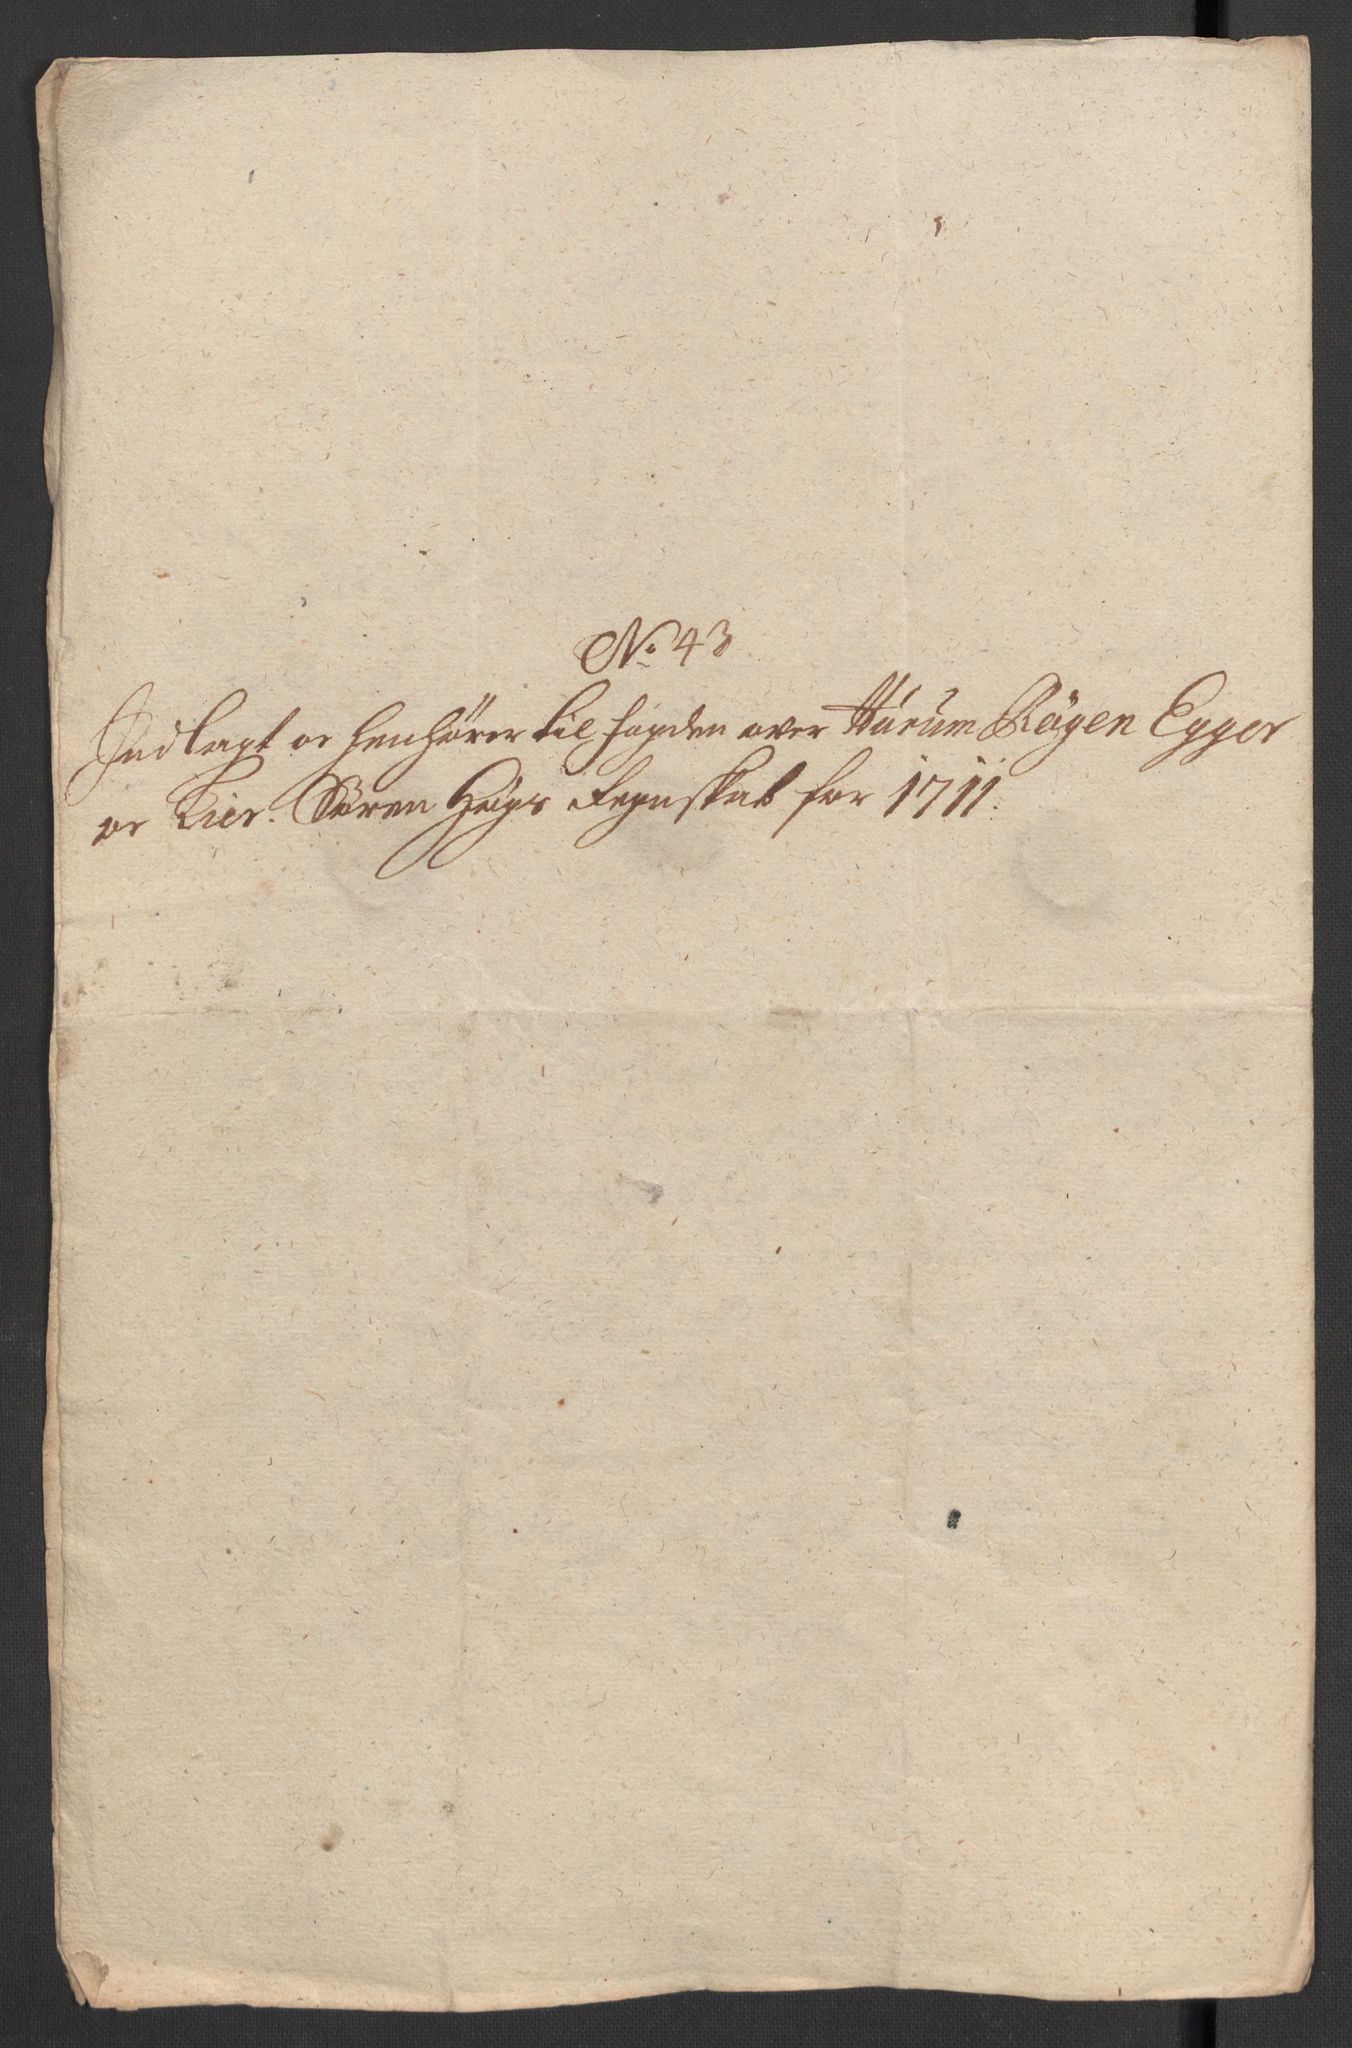 No 43
Indlagt oc henhörer til fogden over Hurum Røgen Egger
oc Lier. Sören Høgs Regnskab for 1711.